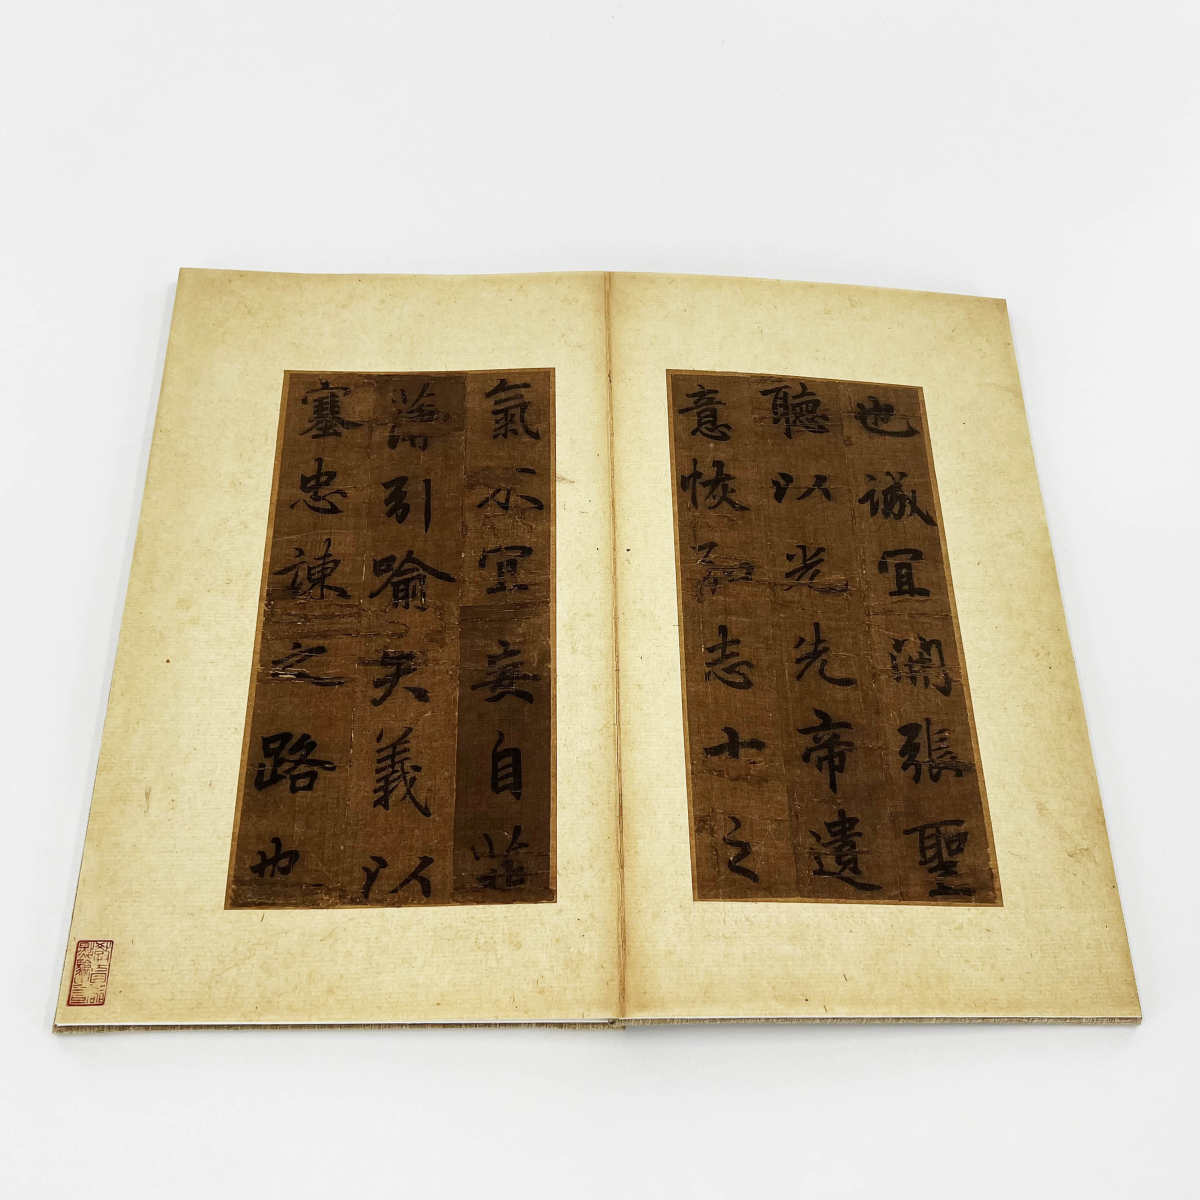 也誠宜開張聖
聽以光先帝遺
意恢弘志士之
氣不宜妄自菲
薄引喻失義以
塞忠諫之路也